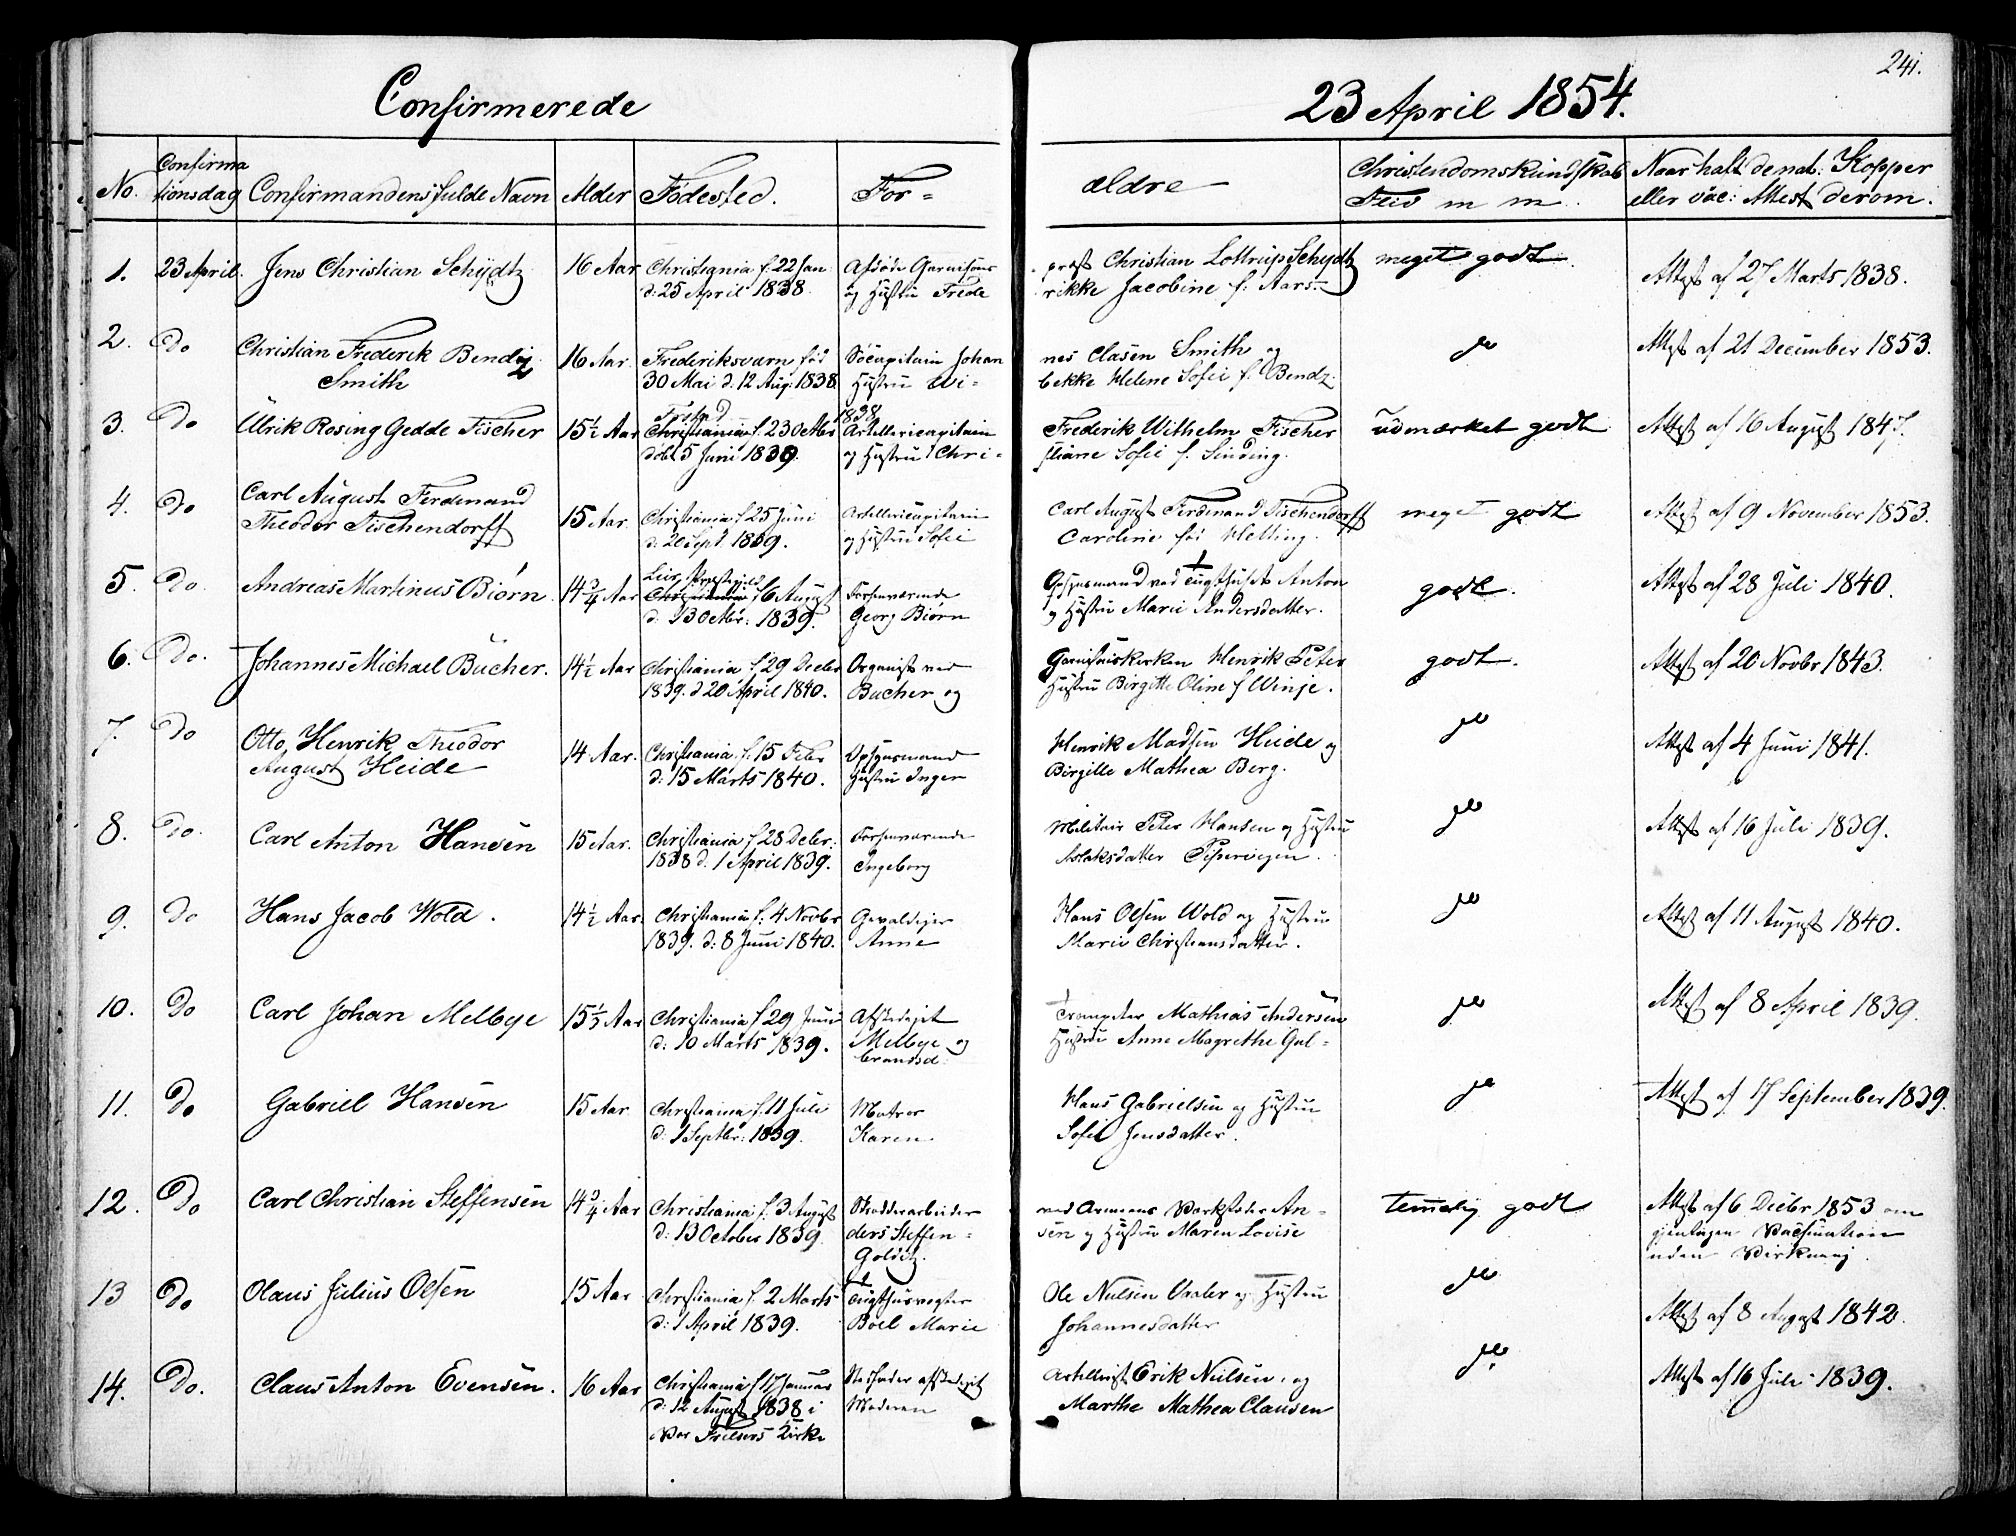 241.
Confirmerede 23 April 1854.
No. Confirmationsdag Confirmandens fulde Navn Alder Födested. For= ældre Christendomskundskab Flid m m. Naar haft de nat: Kopper eller vac: Attest derom.
1. 23 April. Jens Christian Schydtz 16 Aar Christiania f. 22 Jan: Afdøde Garnisons præst Christian Lottrup Schydtz meget godt Attest af 27 Marts 1838.
d: 25 April 1838. og Hustru Frede rikke Jacobine f. Aars
2. Do Christian Frederik Bendz 16 Aar Frederiksvärn fød Søcapitain Johan nes Clasen Smith og do Attest af 21 December 1853.
Smith 30 Mai d. 12 Aug: 1838. Hustru Wi= bekke Helene Sofie f. Bendz.
3. Do Ulrik Rosing Gedde Fischer 15½ Aar Christiania f. 23 Octbr 1838 Artillericapitain Frederik Wilhelm Fischer udmærket godt Attest af 16 August 1847.
døbt 5 Juni 1839. og Hustru Chri= stiane Sofie f. Sinding.
4. Do Carl August Ferdinand 15 Aar. Christiania f 25 Juni Artillericapitain Carl August Ferdinand Tischendorff meget godt Attest af 9 November 1853.
Theodor Tischendorff d. 20 Sept. 1839. og Hustru Sofie Caroline fød Helting.
5. Do. Andreas Martinus Biørn. 14¾ Aar Christiania f 6 August Forhenværende Opsynsmand ved Tugthuset Anton godt. Attest af 28 Juli 1840.
d. 13 Octbr: 1839. Georg Biørn og Hustru Marie Andersdatter.
6. Do. Johannes Michael Bücher. 14½ Aar Christiania f 29 Decbr Organist ved Garnisonskirken Henrik Peter godt. Attest af 20 Novbr 1843.
1839. d 20 April 1840. Bucher og Hustru Birgitte Oline f Winje.
7. Do Otto, Henrik Theodor 14 Aar. Christiania f. 15 Febr Opsynsmand Henrik Madsen Heide og do Attest af 4 Juni 1841.
August Heide d: 15 Marts 1840. Hustru Inger Birgitte Mathea Berg.
8. Do. Carl Anton Hansen 15 Aar. Christiania f 28 Decbr: Forhenværende Militair Peter Hansen og Hustru do Attest af 16 Juli 1839.
1838 d. 1 April 1839. Ingeborg Aslaksdatter Pipervigen.
9. Do Hans Jacob Wold. 14½ Aar Christiania f. 4 Novbr Gevaldiger Hans Olsen Wold og Hustru do Attest af 11 August 1840.
1839. d: 8 Juni 1840. Anne Marie Christiansdatter.
10. Do Carl Johan Melbye Aar Christiania f 29 Afskediget Trompeter Mathias Andersen do Attest af 8 April 1839.
d: 10 Marts 1839. Melbye og Hustru Anne Magrethe Gul=
brandsd:
11. Do Gabriel Hansen 15 Aar Christiania f. 11 Juli Matros Hans Gabrielsen og Hustru do Attest af 17 September 1839.
d: 1 Septbr: 1839. Karen Sofie Jensdatter.
12. Do Carl Christian Steffensen 14¾ Aar Christiania f. 3 August ved Armeens An= temelig godt Attest af 6 Decbr 1853 om
d: 13 October 1839. ders Steffen= sen og Hustru Maren Lovise gjentagen Vaccination
Golitz. uden Virkning.
13 Do Olaus Julius Olsen 15 Aar Christiania f. 2 Marts Tugthusvogter Ole Nielsen Vaaler og Hustru do Attest af 8 August 1842.
d: 1 April 1839. Boel Marie Johannesdatter
14. Do. Claus Anton Evensen. 16 Aar Christiania f 17 Januar afskediget Artillerist Erik Nielsen og do. Attest af 16 Juli 1839.
d: 12 August 1838 i Moderen Marthe Mathea Clausen
Vor Frelsers Kirke